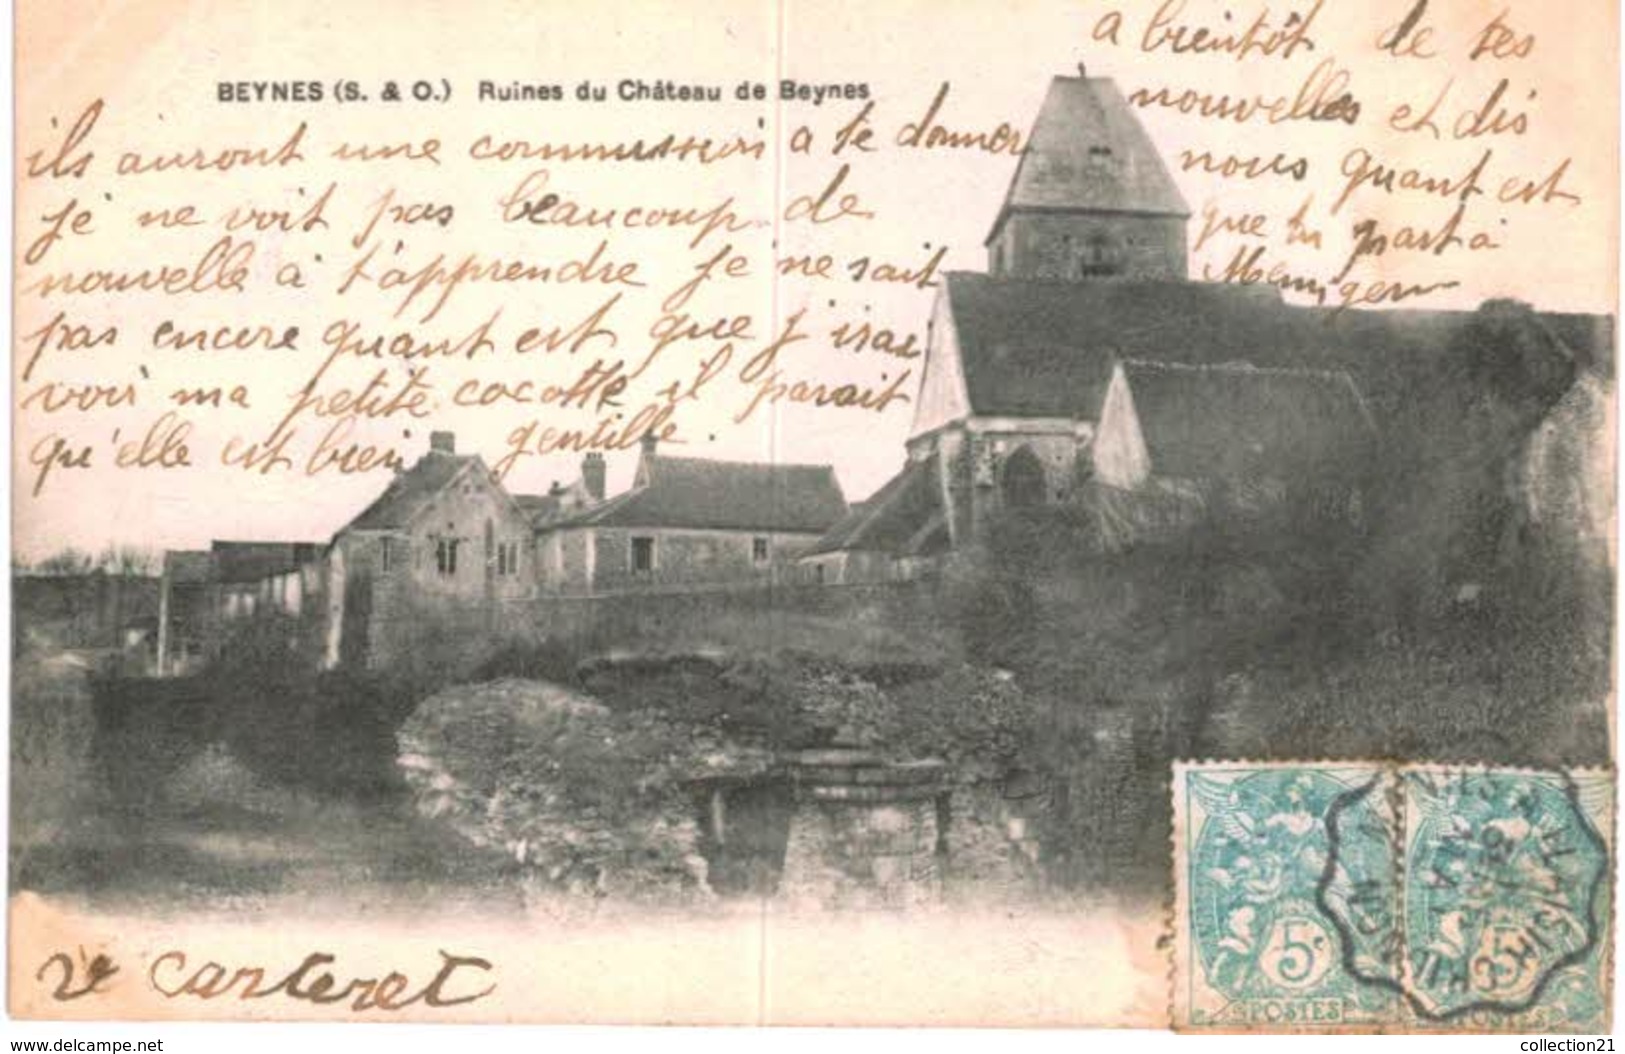 BEYNES (S. & O.) Ruines du Château de Beynes
ils auront une commission a te donner
je ne voit pas beaucoup de
nouvelle à t'apprendre je ne sait
pas encore quant est que j'irai
voir ma petite cocotte il parait
qu'elle est bien gentille.
a bientôt de tes
nouvelles et dis
nous quant est
que tu part à
Ve Carteret
5c 5c
POSTES POSTES
delcampe.net
collection21